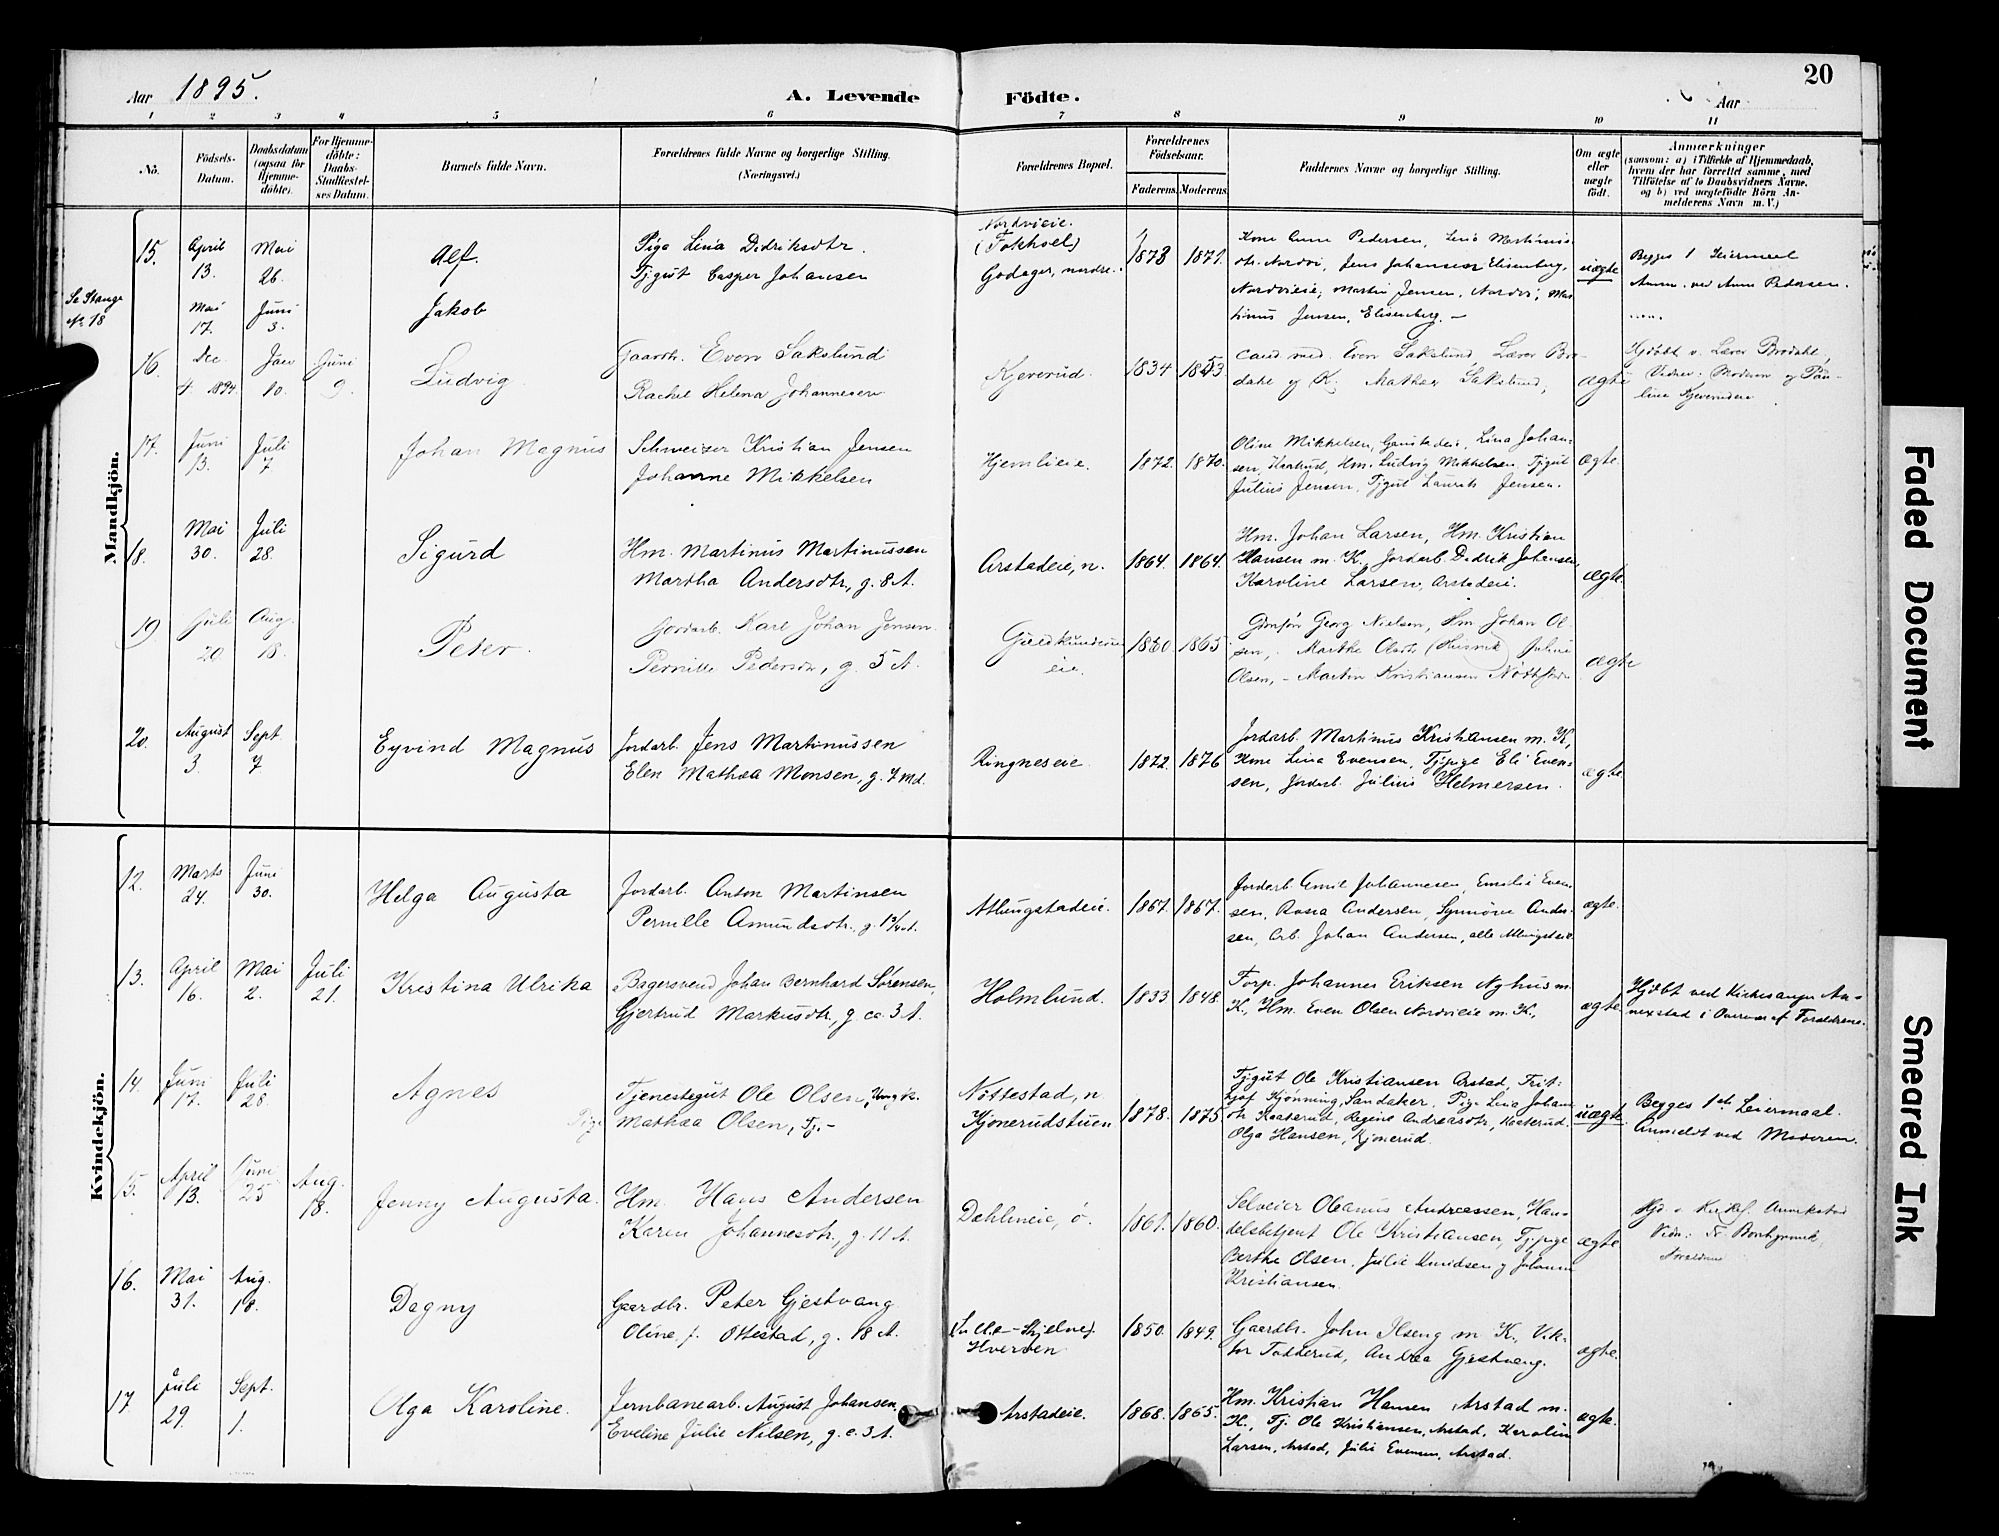 20
Aar 1895.
A. Levende Födte.
Aar
1 2 3 4 5 6 7 8 9 10 11
No.
Födsels-
Datum.
Daabsdatum
(ogsaa for
Hjemme-
döbte).
For Hjemme-
döbte:
Daabs-
Stadfæstel-
ses Datum.
Barnets fulde Navn.
Forældrenes fulde Navne og borgerlige Stilling.
(Næringsvei.)
Forældrenes Bopæl.
Forældrenes
Födselsaar.
Faderens. Moderens.
Faddernes Navne og borgerlige Stilling.
Om ægte
eller
uægte
födt.
Anmærkninger
(saasom: a) i Tilfælde af Hjemmedaab,
hvem der har forrettet samme, med
Tilföielse af to Daabsvidners Navne,
og b) ved uægtefödte Börn An-
melderens Navn m. V.)
Mandkjön.
15.
April
13.
Mai
26.
Alf.
Pige Lina Didriksdtr.
Tjgut Casper Johansen
Nordvieie.
(Fokhoel)
Godager, nordre.
1873 1871.
Kone Anne Pedersen, Lina Martinus-
dtr. Nordvi, Jens Johansen Elisenberg,
Nordvieie, Martin Jensen, Nordvi, Mar-
tinus Jensen, Elisenberg. —
uægte
Begges 1 Leiermaal
Anm. ved Anne Pedersen.
Se Stange
No 18
Mai
17.
Juni
3.
Jakob
16.
Dec.
4. 1894
Jan
10.
Juni
9.
Ludvig.
Gaardbr. Even Sakslund
Rachel Helena Johannesen
Kjeverud.
1834 1853
Cand. med. Even Sakslund, Lærer Bro-
dahl og K., Mathea Sakslund,
ægte
Hjdöbt v. Lærer Brodahl,
Vidner: Moderen og Pau-
line Kjeverudeie
17.
Juni
13.
Juli
7
Johan Magnus
Schweizer Kristian Jensen
Johanne Mikkelsen
Hjemlieie.
1872. 1870.
Oline Mikkelsen, Gaustadeie, Lina Johan-
sen, Kaatrud, Hm. Ludvig Mikkelsen, Tjgut
Julius Jensen, Tjgut Laurits Jensen.
ægte.
18.
Mai
30.
Juli
28.
Sigurd
Hm. Martinus Martinussen
Martha Andersdtr, g. 8 A.
Arstadeie, n.
1864. 1864.
Hm. Johan Larsen, Hm. Kristian
Hansen m. K., Jordarb. Didrik Johansen,
Karoline Larsen, Arstadeie.
ægte.
19
Juli
20.
Aug.
18.
Peter.
Jordarb. Karl Johan Jensen
Pernille Pedersdtr, g. 5 A.
eie.
1865
Georg Nielsen, Hm Johan Ol-
sen, Marthe Olsdtr. Juline
Olsen, – Martin Kristiansen
ægte
20.
August
3.
Sept.
7
Eyvind Magnus
Jordarb. Jens Martinussen
Elen Mathea Monsen, g. 7 Md.
Ringneseie.
1872. 1876
Jordarb. Martinus Kristiansen m. K,
Kone Lina Evensen, Tjpige Eli Even-
sen, Jordarb. Julius Helmersen.
ægte
Kvindekjön.
12.
Marts
24.
Juni
30.
Helga Augusta
Jordarb. Anton Martinsen
Pernille Amundsdtr., g. 1 3/4 A.
Atlungstadeie.
1867. 1867.
Jordarb. Emil Johannesen, Emilie Even-
sen, Rosa Andersen, Synnöve Ander-
sen, Arb. Johan Andersen, alle Atlungstadeie
ægte.
13.
April
16.
Mai
2.
Juli
21.
Kristina Ulrika
Bagersvend Johan Bernhard Sørensen,
Gjertrud Markusdtr, g ca. 3 A.
Holmlund.
1833 1848.
Forp. Johannes Eriksen Nyhus m.
K., Hm. Even Olsen Nordvieie m. K.,
ægte.
Hjdöbt ved Kirkesanger An-
nexstad i Overvær af Forældrene.
14.
Juni
17.
Juli
28.
Agnes
Tjenestegut Ole Olsen, Ungk.
Pige Mathea Olsen, Tj.–
Nöttestad, n
Kjonerudstuen
1878. 1875.
Tjgut Ole Kristiansen Arstad, Frit-
hjof Kjönning, Sandaker, Pige Lina Johans-
dtr Kaaterud, Regine Andreasdtr, Kaaterud.
Olga Hansen, Kjonerud.
uægte
Begges 1ste Leiermaal.
Anmeldt ved Moderen.
15.
April
13.
Juni
25
Aug.
18.
Jenny Augusta.
Hm. Hans Andersen
Karen Johannesdtr., g. 11 A.
Dahlineie, ö.
1861. 1860.
Selveier Oleanus Andreassen, Han-
delsbetjent Ole Kristiansen, Tjpige
Berthe Olsen, Julie Knudsen og Johanne
Kristiansen.
ægte
16.
Mai
31.
Aug.
18.
Dagny
Gaardbr. Peter Gjestvang
Oline, f. Ottestad, g. 18 A.
Hverven
1850. 1849.
Gaardbr. John Ilseng m K., Vik-
tor Fodderud, Andrea Gjestvang.
ægte.
17.
Juli
29.
Sept.
1.
Olga Karoline.
Jernbanearb. August Johansen,
Eveline Julie Nilsen, g. c. 3 A.
Arstadeie.
1868. 1865.
Hm. Kristian Hansen Arstad m.
K., Tj. Ole Kristiansen, Arstad, Karoline
Larsen, Arstad, Julie Evensen, Arstad.
ægte.
Faded Document
Smeared Ink